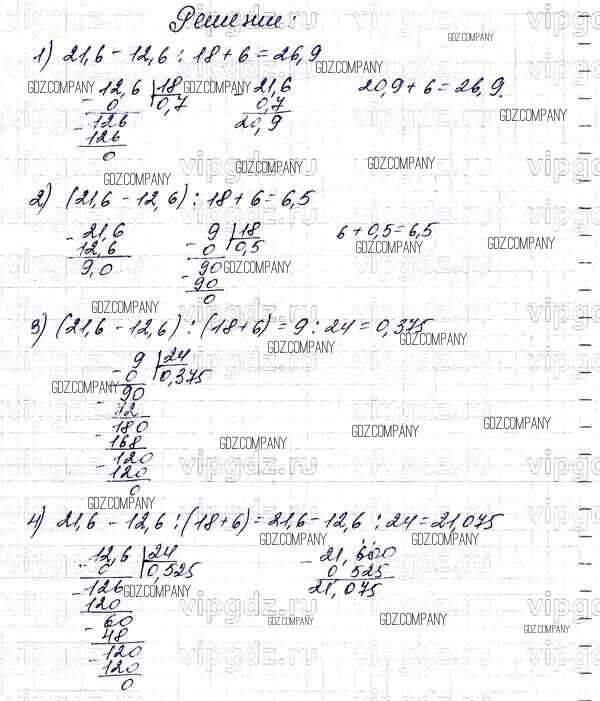 Решение:
1) 21,6 - 12,6 : 18 + 6 = 26,9
12,6 | 18
- 0 | 0,7
126
- 126
0
- 21,6
0,7
20,9
20,9 + 6 = 26,9.
2) (21,6 - 12,6) : 18 + 6 = 6,5
- 21,6
12,6
9,0
9 | 18
- 0 | 0,5
90
- 90
0
6 + 0,5 = 6,5
3) (21,6 - 12,6) : (18 + 6) = 9 : 24 = 0,375
9 | 24
- 0 | 0,375
90
- 72
180
- 168
120
- 120
0
4) 21,6 - 12,6 : (18 + 6) = 21,6 - 12,6 : 24 = 21,075
12,6 | 24
- 0 | 0,525
- 126
120
60
- 48
120
- 120
0
- 21,600
0 525
21,075
GDZ.COMPANY
vipgdz.ru